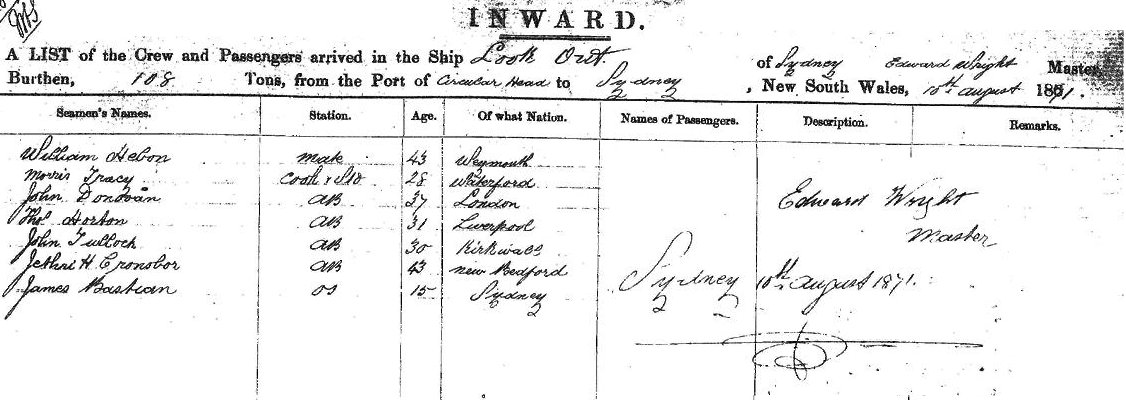 INWARD.
A LIST of the Crew and Passengers arrived in the Ship Look Out of Sydney Edward Wright Master,
Burthen, 108 Tons, from the Port of Circular Head to Sydney, New South Wales, 10th august 1871.
Seamen's Names. Station. Age. Of what Nation. Names of Passengers. Description. Remarks.
William Hebon mate 43 Weymouth
Morris Tracy Cook & Std 28 Waterford
John Donovan AB 37 London
Thos Horton AB 31 Liverpool
John Tulloch AB 30 Kirkwall
H Cronobor AB 43 new Bedford
James Bastian OS 15 Sydney
Edward Wright
Master
Sydney 10th august 1871.